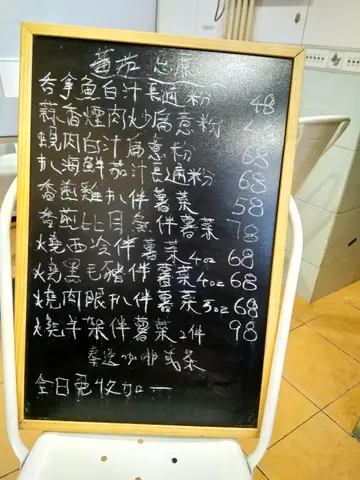 蕃茄忌廉
吞拿魚白汁長通粉 48
蒜香煙肉炒扁意粉
蜆肉白汁扁意粉 68
扒海鮮茄汁長通粉 68
香煎雞扒伴薯菜 58
香煎比目魚伴薯菜 78
燒西冷伴薯菜4oz 68
燒黑毛豬伴薯菜4oz 68
燒肉眼扒伴薯菜5oz 68
燒羊架伴薯菜2件 98
奉送咖啡或茶
全日免收加一